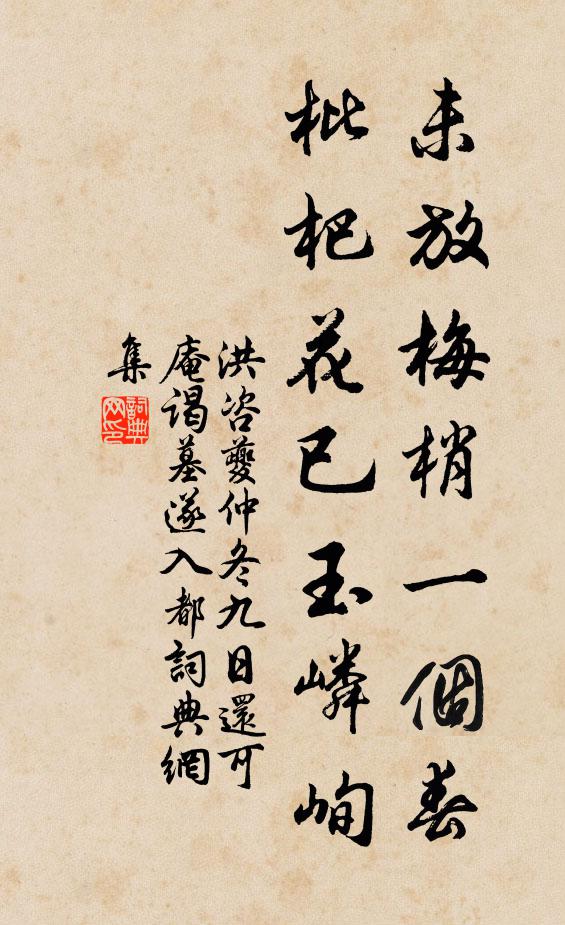 未放梅梢一個春
枇杷花已玉嶙峋
洪咨夔仲冬九日還可
庵謁墓遂入都詞典網
集
詞典
网印